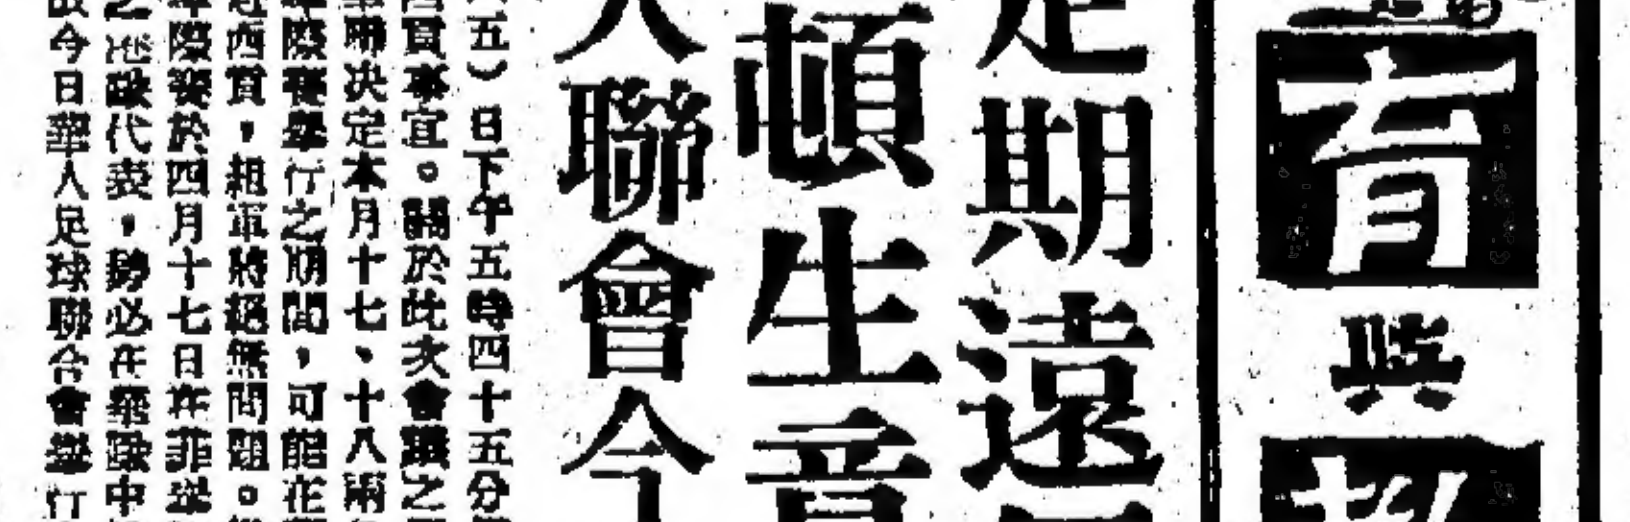 育與
定期遠
頓生意
人聯會今
五）日下午五時四十五分
西貢事宜。關於此次會議之
華聯決定本月十七、十八兩
埠際賽舉行之期間，可能在
西貢，組軍將絕無問題。
埠際賽於四月十七日在菲舉
之港歐代表，勢必在華歐中
故今日華人足球聯合會舉行